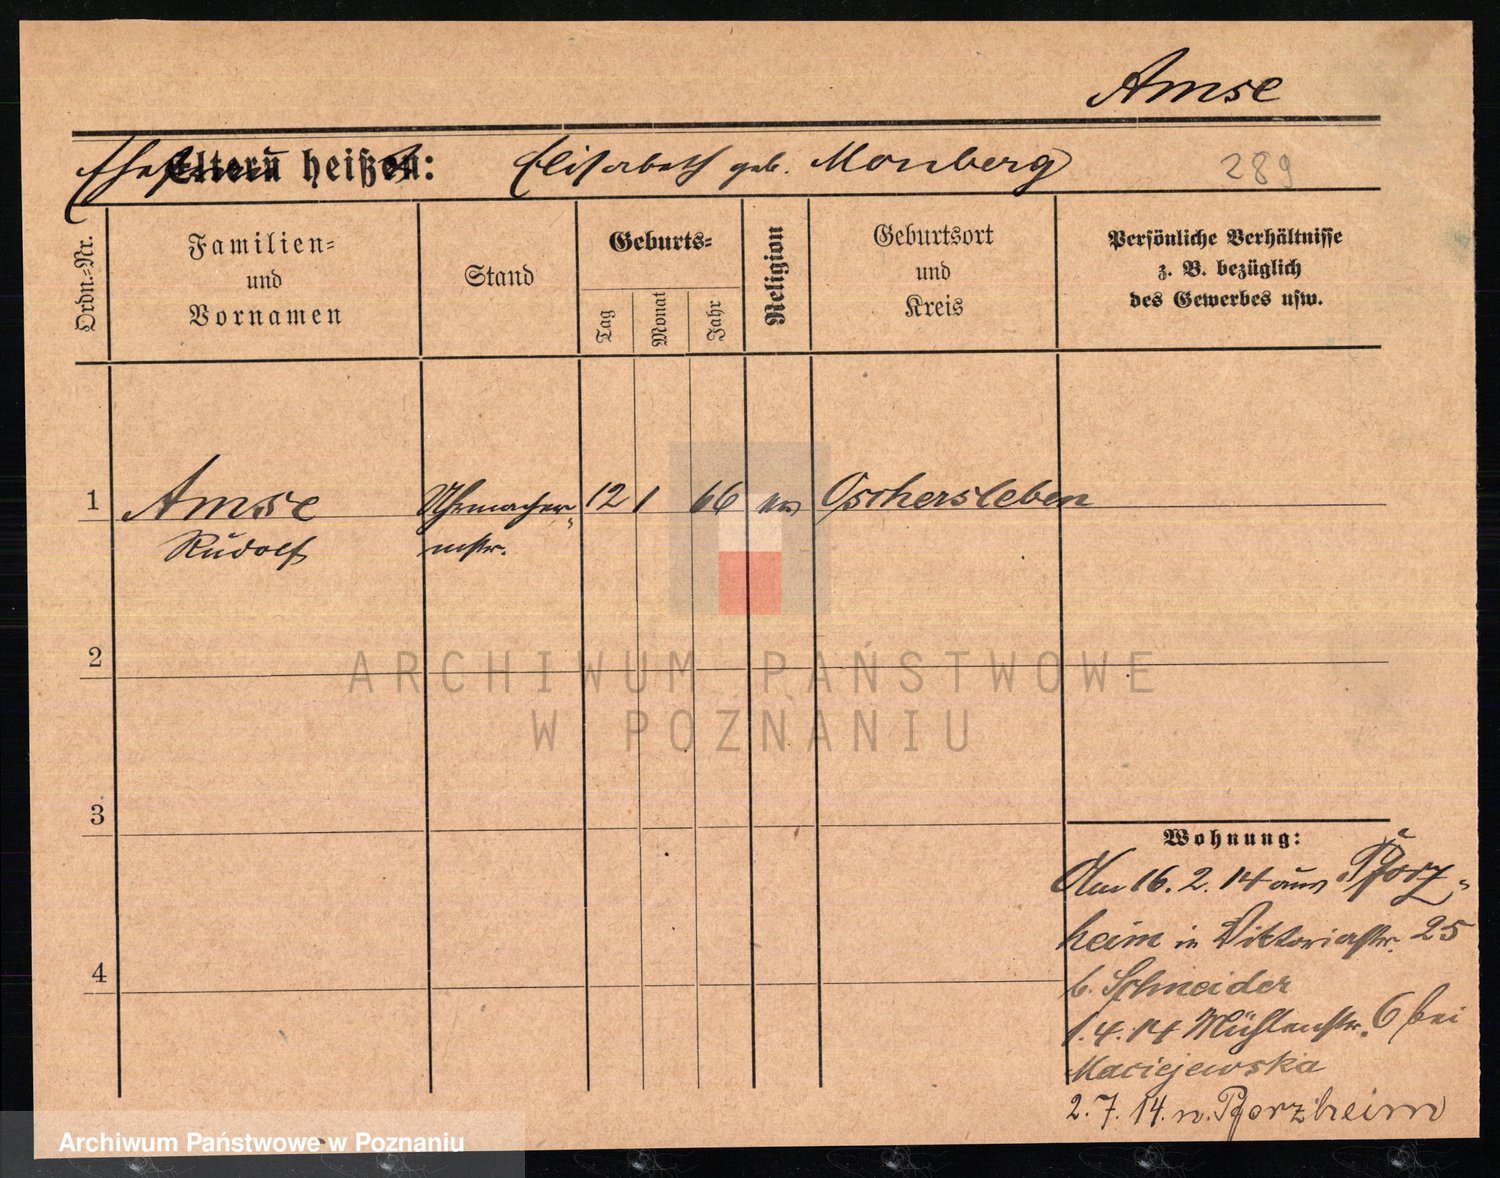 Amse
Eltern heißen: Elisabeth geb. Monberg
289
Ordn.=Nr.
Familien=
und
Vornamen
Stand
Geburts=
Tag
Monat
Jahr
Religion
Geburtsort
und
Kreis
Persönliche Verhältnisse
z. B. bezüglich
des Gewerbes usw.
1 Amse Uhrmacher= 12 1 66 ev Oschersleben
Rudolf mstr.
2
3
4
Wohnung:
Am 16.2.14 aus Pforz=
heim in Viktoriastr. 25
b. Schneider
1.4.14 Mühlenstr. 6 bei
Maciejewska
2.7.14. n. Pforzheim
ARCHIWUM PAŃSTWOWE
W POZNANIU
Archiwum Państwowe w Poznaniu